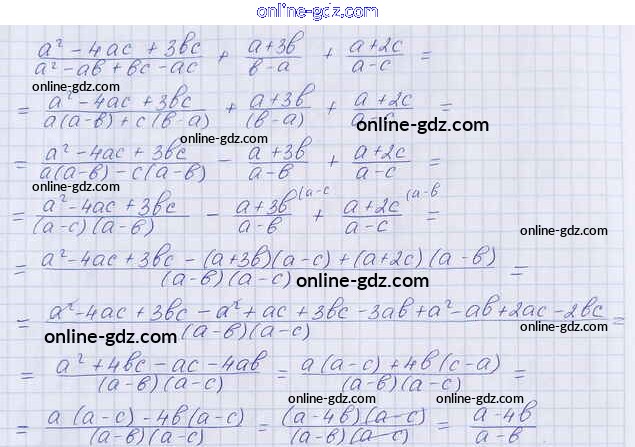 online-gdz.com
(a² - 4ac + 3bc)/(a² - ab + bc - ac) + (a+3b)/(b-a) + (a+2c)/(a-c) =
online-gdz.com
= (a² - 4ac + 3bc)/(a(a-b) + c(b-a)) + (a+3b)/(b-a) + (a+2c)/(a-c) =
online-gdz.com online-gdz.com
= (a² - 4ac + 3bc)/(a(a-b) - c(a-b)) - (a+3b)/(a-b) + (a+2c)/(a-c) =
online-gdz.com
= (a² - 4ac + 3bc)/((a-c)(a-b)) - (a+3b)/(a-b) (a-c + (a+2c)/(a-c) (a-b =
= (a² - 4ac + 3bc - (a+3b)(a-c) + (a+2c)(a-b))/((a-b)(a-c)) =
online-gdz.com
= (a² - 4ac + 3bc - a² + ac + 3bc - 3ab + a² - ab + 2ac - 2bc)/((a-b)(a-c)) =
online-gdz.com online-gdz.com
= (a² + 4bc - ac - 4ab)/((a-b)(a-c)) = (a(a-c) + 4b(c-a))/((a-b)(a-c)) =
online-gdz.com online-gdz.com
= (a(a-c) - 4b(a-c))/((a-b)(a-c)) = ((a-4b)(a-c))/((a-b)(a-c)) = (a-4b)/(a-b)
online-gdz.com